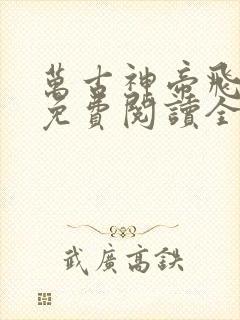 萬古神帝飛
免費閱讀全
武廣高鉄